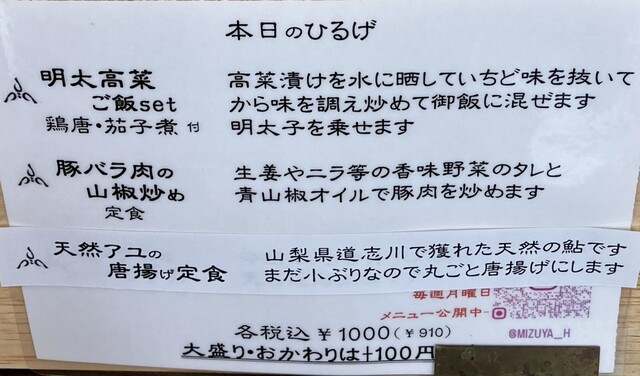 本日のひるげ
明太高菜
ご飯set
鶏唐・茄子煮 付
高菜漬けを水に晒していちど味を抜いて
から味を調え炒めて御飯に混ぜます
明太子を乗せます
豚バラ肉の
山椒炒め
定食
生姜やニラ等の香味野菜のタレと
青山椒オイルで豚肉を炒めます
天然アユの
唐揚げ定食
山梨県道志川で獲れた天然の鮎です
まだ小ぶりなので丸ごと唐揚げにします
毎週月曜日
メニュー公開中→
@MIZUYA_H
各税込￥1000(￥910)
大盛り・おかわりは+100円